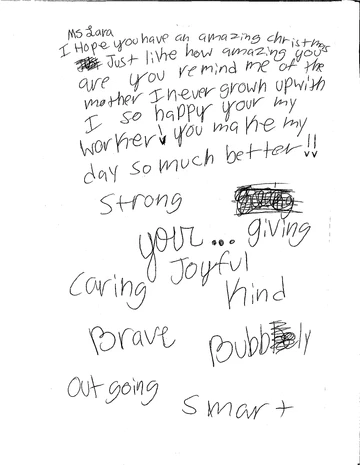 Ms Lara
I Hope you have an amazing christmas
Just like how amazing you
are you remind me of the
mother I never grown up with
I so happy your my
worker! you make my
day so much better!!
Strong
giving
your...
Joyful
Caring
Kind
Brave
Bubbly
Outgoing
Smart